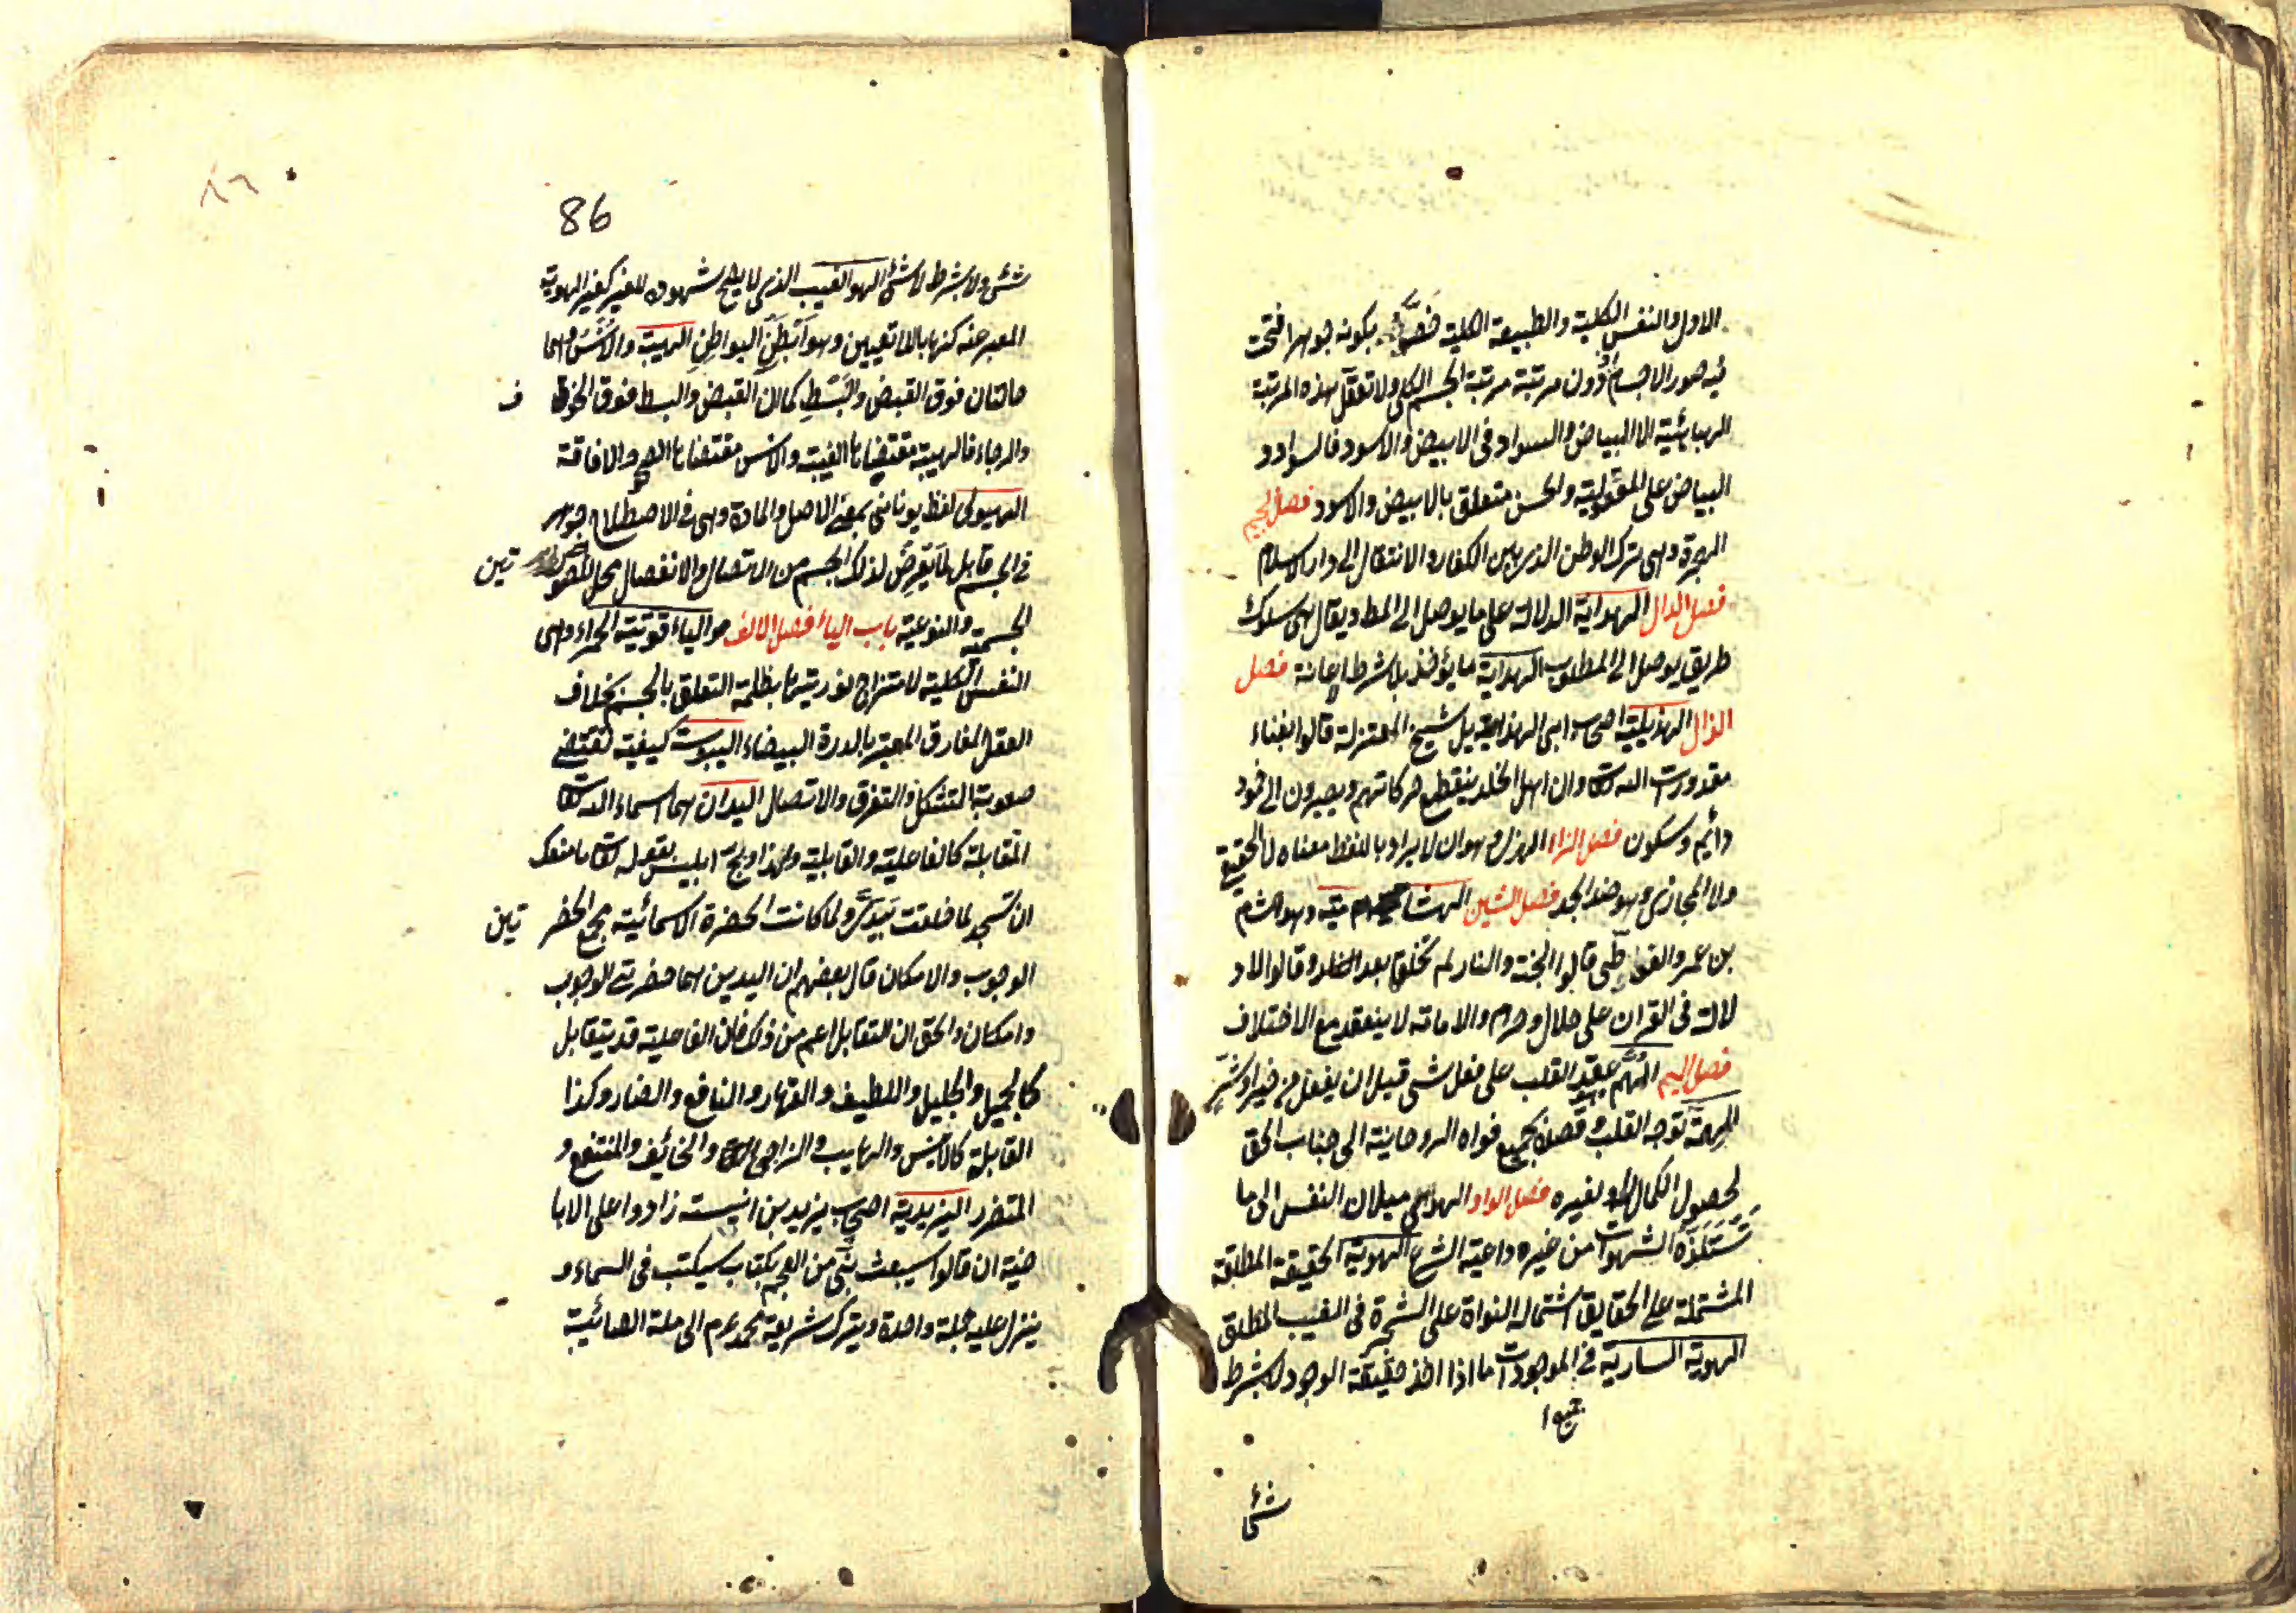 الاول والنفس الكلية والطبيعة الكلية خصه بكونه جوهرا فتحت
فيه صور الاجسام اذ دون مرتبته مرتبة الجسم الكلي ولا تعقل هذه المرتبة
الهبائية الا البياض والسواد في الابيض والاسود فالسواد و
البياض على المعقولية والحس متعلق بالابيض والاسود فصل الجيم
الهجرة وهي ترك الوطن الذي بين الكفار والانتقال الى دار الاسلام
فصل الدال الهداية الدلالة على ما يوصل الى المط ويقال هي سلوك
طريق يوصل الى المطلوب الهداية ما يؤخذ بلا شرط الاعانة فصل
الذال الهذيلية اصحاب ابي الهذيل شيخ المعتزلة قالوا بفناء
مقدورت الله وان اهل الخلد ينقطع حركاتهم ويصيرون الى خود
دائم وسكون فصل الزاء الهزل وهو ان لا يراد باللفظ معناه لا الحقيقي
ولا المجازي وهو ضد الجد فصل الشين الهشامية وهو هشام
بن عمر والفوطي قالوا الجنة والنار لم تخلقا بعد وقالوا لا د
لالة في القران على حلال وحرم والامامة لا ينعقد مع الاختلاف
فصل الميم الهم هو عقد القلب على فعل شى قبل ان يفعل من خير او شر
الهمة توجه القلب وقصده بجميع قواه الروحانية الى جناب الحق
لحصول الكمال له او لغيره فصل الواو الهوى ميلان النفس الى ما
تستلذه الشهوات من غيره داعية الشرع الهوية الحقيقة المطلقة
المشتملة على الحقايق اشتماله النواة على الشجرة في الغيب المطلق
الهوية السارية في الموجودات ما اذا اخذ حقيقة الوجود لا بشرط
شئ
86
٨٦
شئ ولا بشرط لا شئ الهو الغيب الذي لا يصح شهوده للغير كغير الهوية
المعبر عنه كنها باللا تعيين وهو ابطن البواطن الهيبة والانس هما
حالتان فوق القبض والبسط كما ان القبض والبسط فوق الخوف ف
والرجاء فالهيبة مقتضاها الغيبة والانس مقتضاها الصحو والافاقة
الهيولى لفظ يوناني بمعنى الاصل والمادة وهي في الاصطلاح جوهر
في الجسم قابل لما يعرض لذلك الجسم من الاتصال والانفصال محل للصور تين
الجسمية والنوعية باب الياء فصل الالف هو الياء قوتية الحمراء وهي
النفس الكلية لامتزاج نوريتها بظلمة التعلق بالجسم بخلاف
العقل المفارق المعبر بالدرة البيضاء اليبوست كيفية تقتضي
صعوبة التشكل والتفرق والاتصال اليدان هما اسماء الله
المتقابلة كالفاعلية والقابلية ولهذا وبخ ابليس بقوله ما منعك
ان تسجد لما خلقت بيدي ولما كانت الحضرة الاسمائية مجمع الحضر تين
الوجوب والامكان قال بعضهم ان اليدين هما حضرتي الوجوب
وامكان والحق ان التقابل اعم من ذلك فان الفاعلية قد يتقابل
كالجميل والجليل واللطيف والقهار والنافع والضار وكذا
القابلة كالانيس والهايب والراجي والخائف والمنتفع و
المتضرر اليزيدية اصحاب يزيد بن انيسة زادوا على الابا
ضية ان قالوا سيبعث نبي من العجم بكتاب سيكتب في السماء و
ينزل عليه جملة واحدة ويترك شريعة محمد عم الى ملة الصائبية